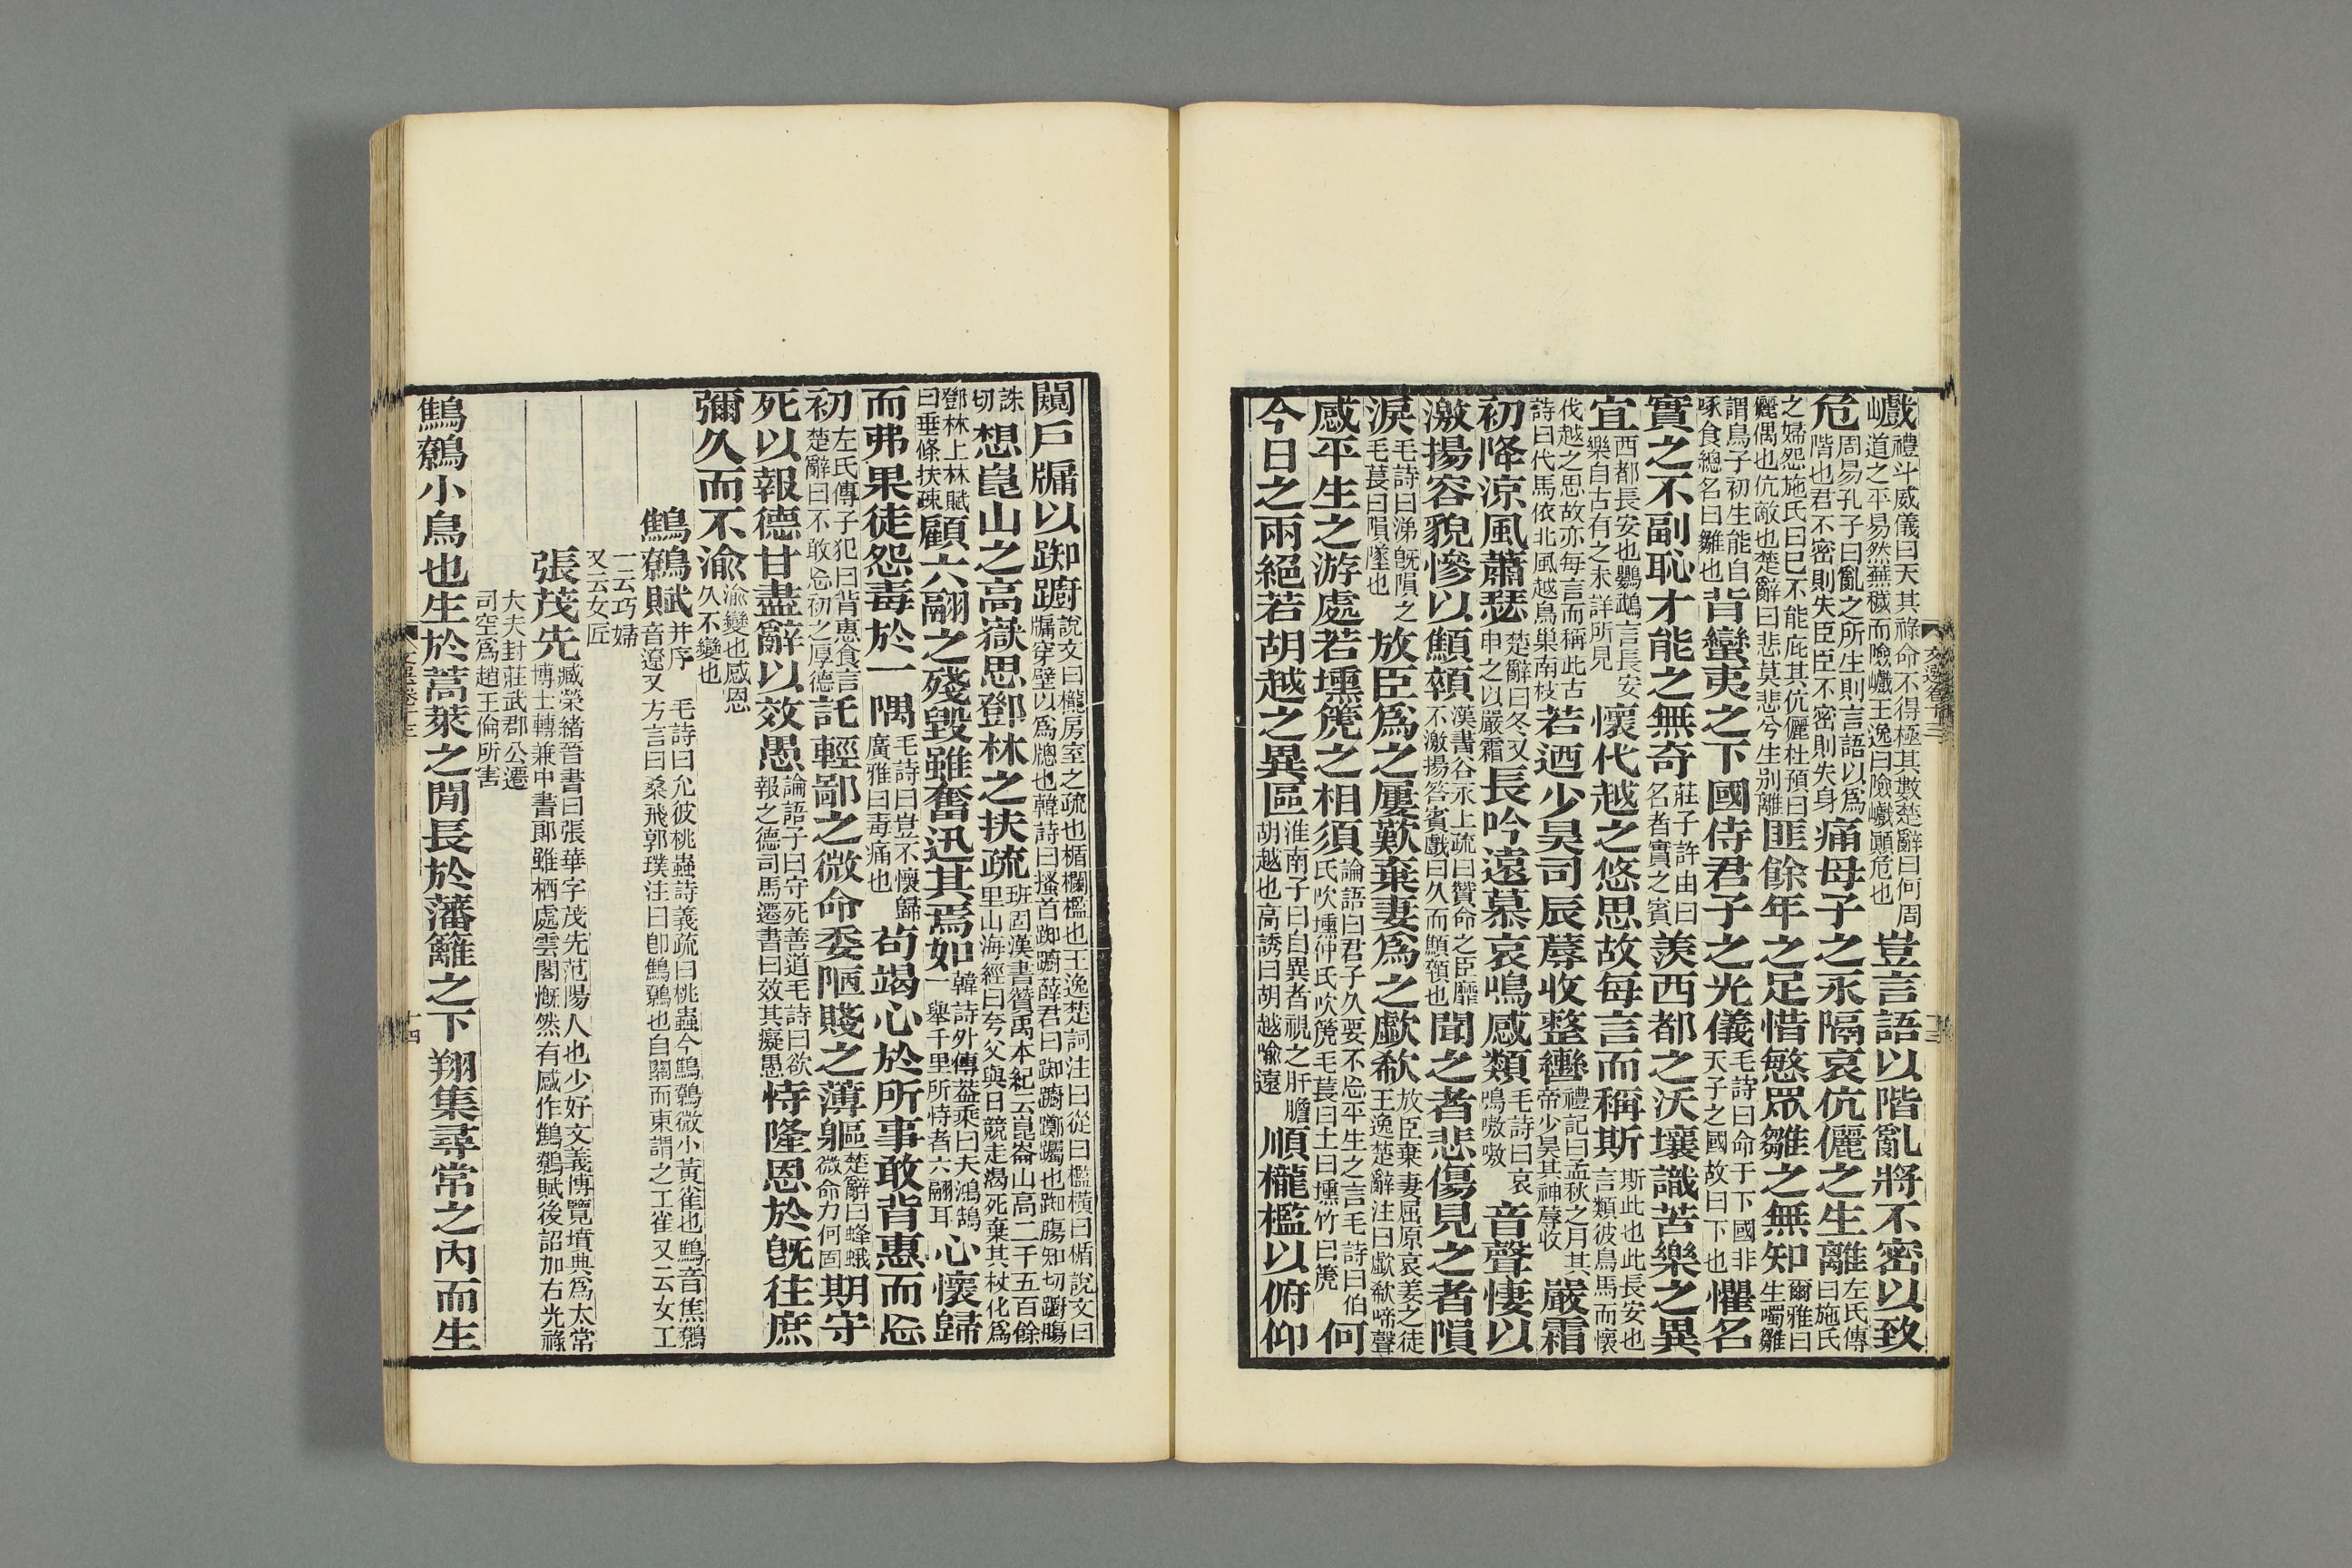 巇禮斗威儀曰天其祿命不得極其數楚辭曰何周道之平易然蕪穢而險巇王逸曰險巇顚危也豈言語以階亂將不密以致
危周易孔子曰亂之所生則言語以爲階也君不密則失臣臣不密則失身痛母子之永隔哀伉儷之生離左氏傳曰施氏
之婦怨施氏曰已不能庇其伉儷杜預曰儷偶也伉敵也楚辭曰悲莫悲兮生別離匪餘年之足惜慜眾雛之無知爾雅曰生噣雛
謂鳥子初生能自啄食總名曰雛也背蠻夷之下國侍君子之光儀毛詩曰命于下國非天子之國故曰下也懼名
實之不副恥才能之無奇莊子許由曰名者實之賓羨西都之沃壤識苦樂之異
宜西都長安也鸚鵡言長安樂自古有之未詳所見懷代越之悠思故每言而稱斯斯此也此長安也言類彼鳥馬而懷
伐越之思故亦每言而稱此古詩曰代馬依北風越鳥巢南枝若迺少昊司辰蓐收整轡禮記曰孟秋之月其帝少昊其神蓐收嚴霜
初降涼風蕭瑟楚辭曰冬又申之以嚴霜長吟遠慕哀鳴感類毛詩曰哀鳴嗷嗷音聲悽以
激揚容貌慘以顦顇漢書谷永上疏曰贊命之臣靡不激揚答賓戲曰久而顦顇也聞之者悲傷見之者隕
淚毛詩曰涕旣隕之毛萇曰隕墜也放臣爲之屢歎棄妻爲之歔欷放臣棄妻屈原哀姜之徒王逸楚辭注曰歔欷啼聲
感平生之游處若壎篪之相須論語曰君子久要不忘平生之言毛詩曰伯氏吹壎仲氏吹篪毛萇曰土曰壎竹曰篪何
今日之兩絕若胡越之異區淮南子曰自異者視之肝膽胡越也高誘曰胡越喻遠順櫳檻以俯仰
闚戶牖以踟躕說文曰櫳房室之疏也楯欄檻也王逸楚詞注曰從曰檻橫曰楯說文曰牖穿壁以爲牕也韓詩曰搔首踟躕薛君曰踟躕躑躅也踟腸知切躕腸
誅切想崑山之高嶽思鄧林之扶疏班固漢書贊禹本紀云崑崙山高二千五百餘里山海經曰夸父與日競走渴死棄其杖化爲
鄧林上林賦曰垂條扶疎顧六翮之殘毀雖奮迅其焉如韓詩外傳蓋乘曰夫鴻鵠一舉千里所恃者六翮耳心懷歸
而弗果徒怨毒於一隅毛詩曰豈不懷歸廣雅曰毒痛也苟竭心於所事敢背惠而忘
初左氏傳子犯曰背惠食言楚辭曰不敢忘初之厚德託輕鄙之微命委陋賤之薄軀楚辭曰蜂蛾微命力何固期守
死以報德甘盡辭以效愚論語子曰守死善道毛詩曰欲報之德司馬遷書曰效其癡愚恃隆恩於旣往庶
彌久而不渝渝變也感恩久不變也
鷦鷯賦并序毛詩曰允彼桃蟲詩義疏曰桃蟲今鷦鷯微小黃雀也鷦音焦鷯音遼又方言曰桑飛郭璞注曰卽鷦鷯也自關而東謂之工雀又云女工
一云巧婦又云女匠
張茂先臧榮緒晉書曰張華字茂先范陽人也少好文義博覽墳典爲太常博士轉兼中書郞雖栖處雲閣慨然有感作鷦鷯賦後詔加右光祿
大夫封莊武郡公遷司空爲趙王倫所害
鷦鷯小鳥也生於蒿萊之閒長於藩籬之下翔集尋常之內而生
十四